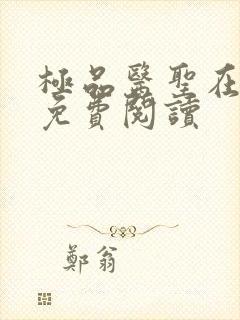 極品醫聖在
免費閱讀
鄭翁